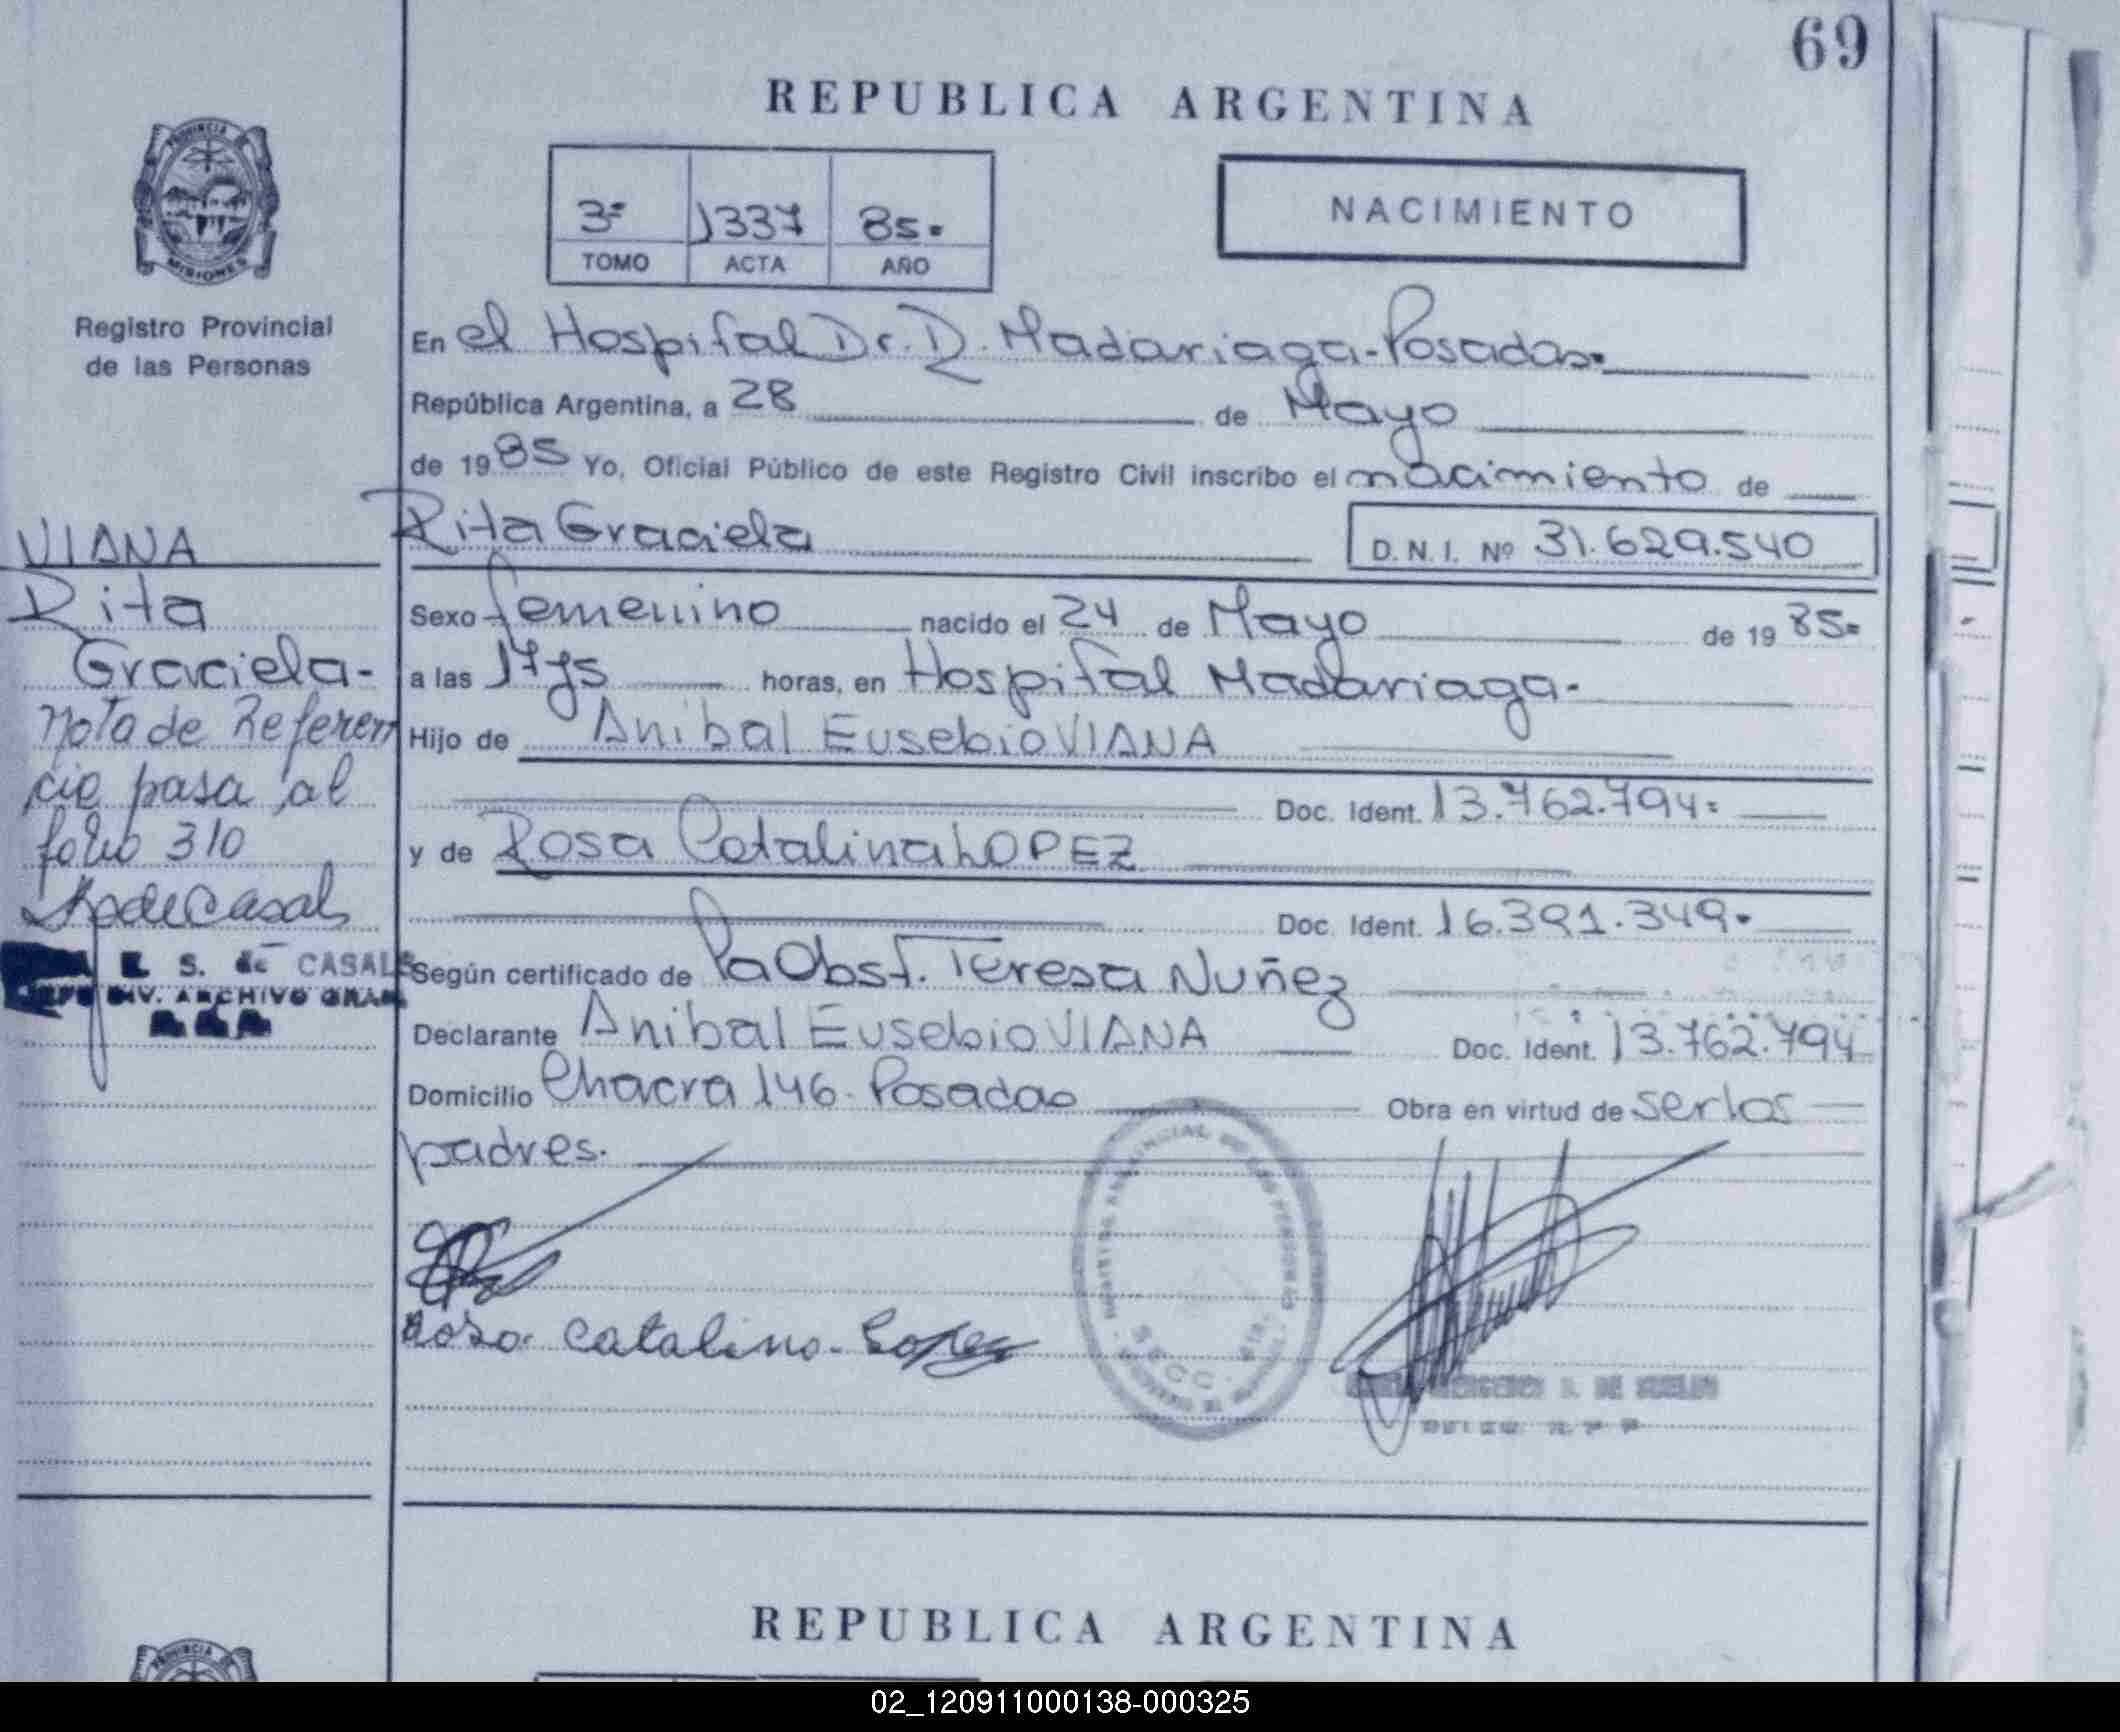 69
REPUBLICA ARGENTINA
PROVINCIA DE
MISIONES
Registro Provincial
de las Personas
3º 1337 85.
TOMO ACTA AÑO
NACIMIENTO
En el Hospital Dr. R. Madariaga-Posadas.
República Argentina, a 28 de Mayo
de 1985 Yo, Oficial Público de este Registro Civil inscribo el nacimiento de
Rita Graciela D.N.I. Nº 31.629.540
Sexo femenino nacido el 24 de Mayo de 1985.
a las 17 horas, en Hospital Madariaga.
Hijo de Anibal Eusebio VIANA
Doc. Ident. 13.762.794.
y de Rosa Catalina LOPEZ
Doc. Ident. 16.391.349.
Según certificado de Pa Obst. Teresa Nuñez
Declarante Anibal Eusebio VIANA Doc. Ident. 13.762.794
Domicilio Chacra 146. Posadas Obra en virtud de ser los
padres.
Rosa Catalina Lopez
VIANA
Rita
Graciela-
Nota de Referen
cia pasa al
folio 310
E. S. de CASALS
DIV. ARCHIVO GRAL
SECC.
DE
REPUBLICA ARGENTINA
PROVINCIA DE
02_120911000138-000325